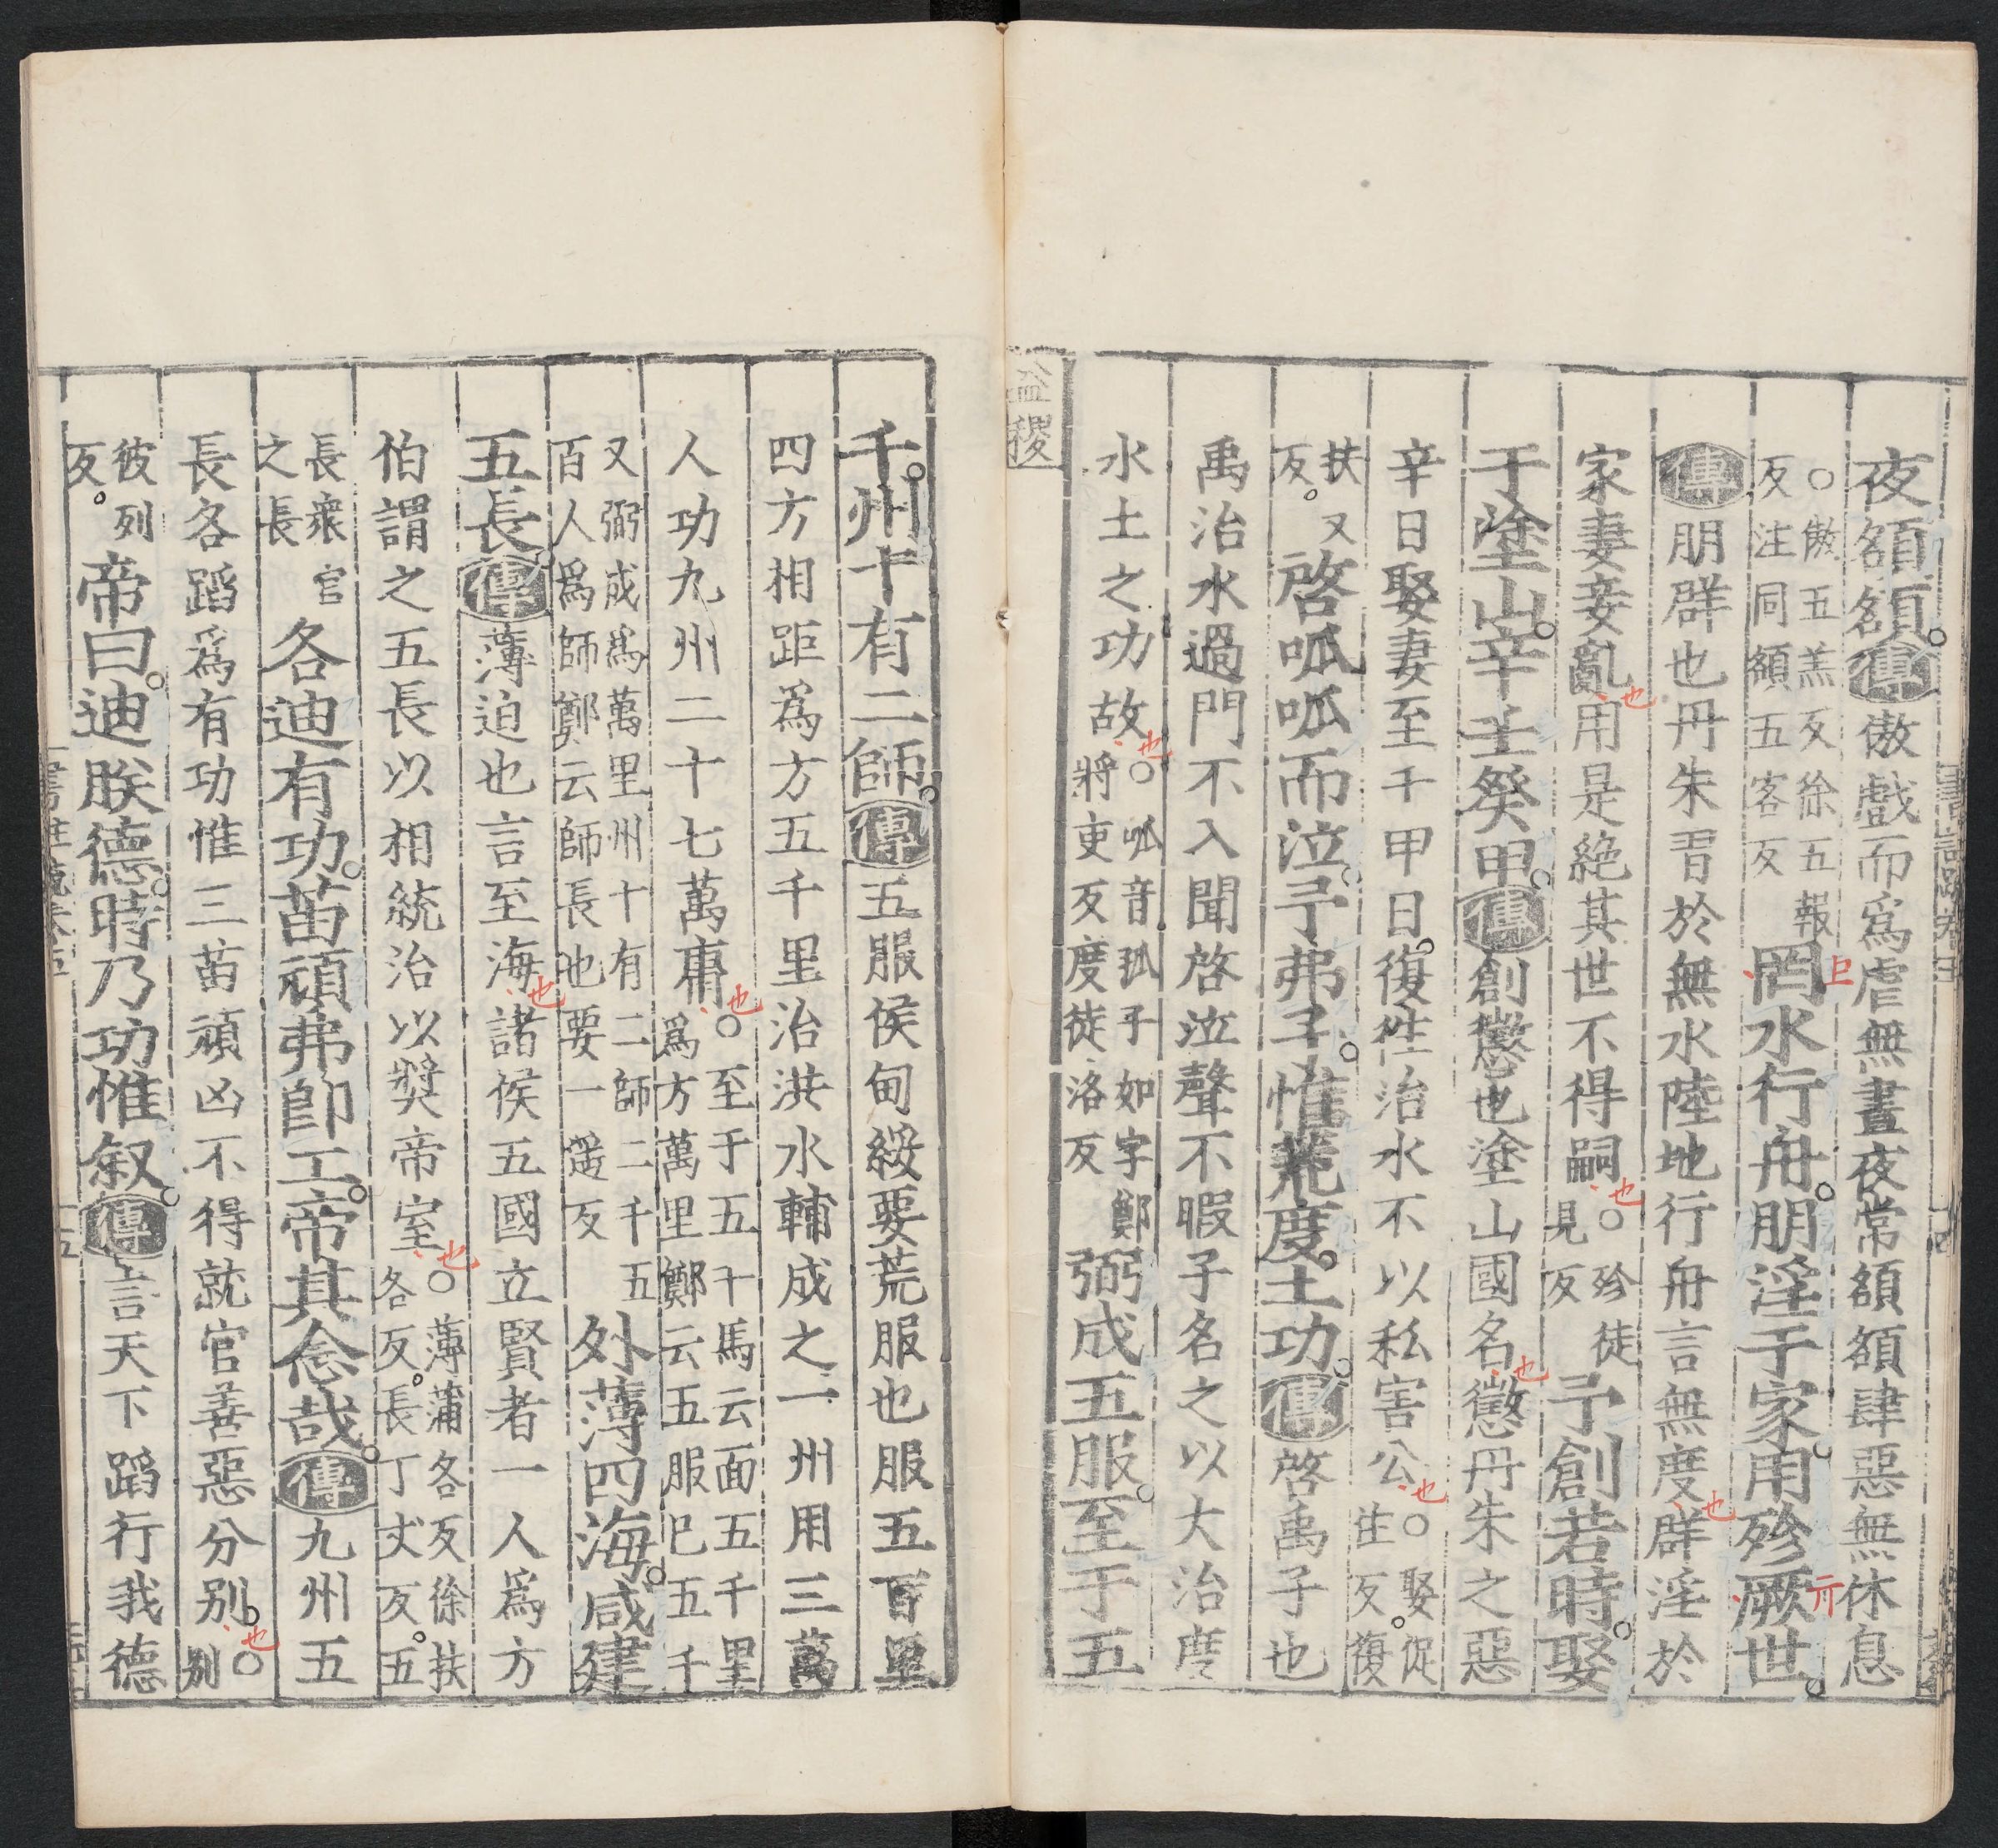 夜頟頟傳傲戲而爲虐無晝夜常頟頟肆惡無休息
○傲五羔反徐五報
反注同頟五客反
罔水行舟朋淫于家用殄厥世
傳朋群也丹朱習於無水陸地行舟言無度群淫於
家妻妾亂用是絶其世不得嗣○殄徒
見反
予創若時娶
于塗山辛壬癸甲傳創懲也塗山國名懲丹朱之惡
辛日娶妻至于甲日復往治水不以私害公○娶促
住反復
扶又
反
啓呱呱而泣予弗子惟荒度土功傳啓禹子也
禹治水過門不入聞啓泣聲不暇子名之以大治度
水土之功故○呱音孤子如字鄭
將吏反度徒洛反
弼成五服至于五
益稷
千州十有二師傳五服侯甸綏要荒服也服五百里
四方相距爲方五千里治洪水輔成之一州用三萬
人功九州二十七萬庸○至于五千馬云面五千里
爲方萬里鄭云五服已五千
又弼成爲萬里州十有二師二千五
百人爲師鄭云師長也要一遥反
外薄四海咸建
五長傳薄迫也言至海諸侯五國立賢者一人爲方
伯謂之五長以相統治以奬帝室○薄蒲各反徐扶
各反長丁丈反五
長衆官
之長
各迪有功苗頑弗卽工帝其念哉傳九州五
長各蹈爲有功惟三苗頑凶不得就官善惡分别○
别
彼列
反
帝曰迪朕德時乃功惟叙傳言天下蹈行我德
也
也
也
也
也
也
也
也
也
也